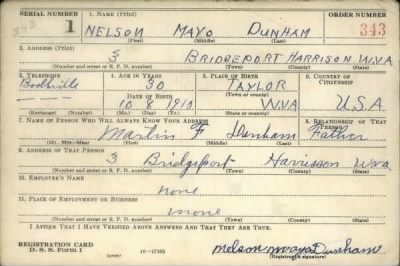 SERIAL NUMBER 1. NAME (Print) ORDER NUMBER
343 1 NELSON MAYO DUNHAM 343
(First) (Middle) (Last)
2. ADDRESS (Print)
3 BRIDGEPORT HARRISON W.VA
(Number and street or R. F. D. number) (Town) (County) (State)
3. TELEPHONE 4. AGE IN YEARS 5. PLACE OF BIRTH 6. COUNTRY OF CITIZENSHIP
30 TAYLOR
DATE OF BIRTH (Town or county)
10 8 1910 W.VA U.S.A
(Exchange) (Number) (Mo.) (Day) (Yr.) (State or country)
7. NAME OF PERSON WHO WILL ALWAYS KNOW YOUR ADDRESS 8. RELATIONSHIP OF THAT PERSON
Martin F Dunham Father
(Mr., Mrs., Miss) (First) (Middle) (Last)
9. ADDRESS OF THAT PERSON
3 Bridgeport Harrison W.va.
(Number and street or R. F. D. number) (Town) (County) (State)
10. EMPLOYER'S NAME
none
11. PLACE OF EMPLOYMENT OR BUSINESS
none
(Number and street or R. F. D. number) (Town) (County) (State)
I AFFIRM THAT I HAVE VERIFIED ABOVE ANSWERS AND THAT THEY ARE TRUE.
REGISTRATION CARD
D. S. S. Form 1 (over) 16-17105 nelson mayo Dunham
(Registrant's signature)